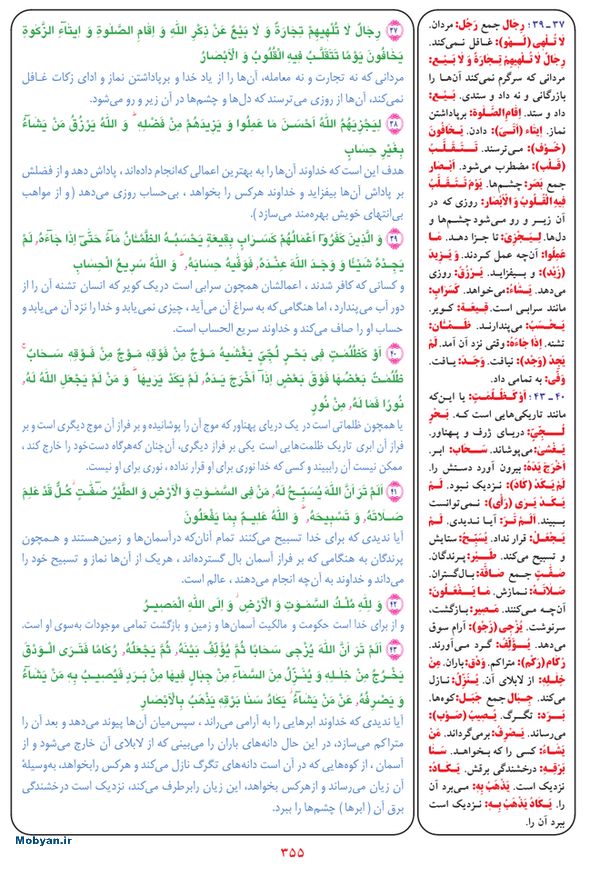 ۳۷ـ ۳۹ : رِجال جمع رَجُل: مردان.
لَا تُلْهِی (لَـهْو): غافل نمی‌کند.
رِجَالٌ لَا تُـلْـهِيهِمْ تِجَارَةٌ وَ لَا بَيْعٌ:
مردانی که سرگرم نمی‌کند آن‌هـا را
بازرگانی و نه داد و ستدی. بَـيْـع:
داد و ستد. إِقامِ الصَّلٰوة: برپاداشتن
نماز. اِیتاء (اَتیٰ): دادن. يَـخَافُونَ
(خَـوْف): می‌ترسند. تَـتَـقَـلَّـبُ
(قَـلب): مضطرب می‌شود. أَبْصَار
جمع بَصَر: چشم‌ها. يَوْمَ تَـتَـقَـلَّبُ
فِيهِ الْقُلُوبُ وَ الْأَبْصَار: روزی که در
آن زیـر و رو مـی‌شود چشم‌ها و
دل‌ها. لِـيَـجْـزِیَ: تا جزا دهـد. مَـا
عَمِلُوا: آن‌چه عمل کردند. وَ يَـزِيدَ
(زَيْد): و بیفزاید. يَـرْزُقُ: روزی
می‌دهد. يَشَاءُ: می‌خواهد. کَسَرَابٍ:
مانند سرابی است. قِـيعَة: کویر.
يَـحْسَبُ: می‌پندارنـد. ظَـمْـئَـان:
تشنه. إِذَا جَاءَهُ: وقتی نزد آن آمد. لَمْ
يَجِدْ (وَجَد): نیافت. وَجَـدَ: یـافت.
وَفَّیٰ: به تمامی داد.
۴۰ ـ ۴۳ : أَوْ كَـظُـلُـمَـتٍ: یا این‌که
مانند تاریکی‌هایی است کـه. بَـحْرٍ
لُـجِّـيٍّ: دریـای ژرف و پـهناور.
يَغْشَیٰ: می‌پوشاند. سَـحَـاب: ابـر.
أَخْرَجَ يَدَهُ: بیرون آورد دستش را.
لَـمْ يَـكَـدْ (كَاد): نزدیک نبود. لَـمْ
يَـكَـدْ يَـرَىٰ (رَأیٰ): نـمی‌توانست
ببیند. أَلَـمْ تَـرَ: آیـا نـدیدی. لَـمْ
يَـجْـعَـلْ: قرار نداد. يُسَـبِّـحُ: ستایش
و تسبیح می‌کند. طَـيْـر: پـرندگان.
صَـفَّـتٍ جـمـع صَافَّة: بال‌گستران.
صَلَاتَـهُ: نـمازش. مَـا يَـفْـعَـلُـونَ:
آن‌چـه مـی‌کنند. مَـصِير: بـازگشت،
سرنوشت. يُزْجِي (زَجْو): آرام سوق
می‌دهد. يُـؤَلِّـفُ: گـرد مـی‌آورنـد.
رُكَام (رَكْم): متراکم. وَدْق: باران. مِنْ
خِلٰلِهِ: از لابلای آن. يُـنَـزِّلُ: نـازل
می‌کند. جِـبَال جمع جَـبَل: کوه‌ها.
بَـرَد: تگـرگ. يُـصِيبُ (صَوْب):
می‌رساند. يَـصْرِفُ: برمی‌گرداند. مَنْ
يَشَاءُ: کسی را که بـخواهـد. سَـنَا
بَـرْقِـهِ: درخشندگی برقش. يَـكَادُ:
نزدیک است. يَـذْهَبُ بِـهِ: می‌برد آن
را. يَـكَادُ يَـذْهَبُ بِـهِ: نزدیک است
ببرد آن را.
﴿۳۷﴾ رِجَالٌ لَا تُلْهِيهِمْ تِجَارَةٌ وَ لَا بَيْعٌ عَنْ ذِكْرِ اللهِ وَ إِقَامِ الصَّلٰوةِ وَ إِيتَآءِ الزَّكٰوةِ
يَخَافُونَ يَوْمًا تَتَقَلَّبُ فِيهِ الْقُلُوبُ وَ الْأَبْصَارُ
مردانی که نه تجارت و نه معامله، آن‌ها را از یاد خدا و برپاداشتن نماز و ادای زکات غـافل
نمی‌کند، آن‌ها از روزی می‌ترسند که دل‌ها و چشم‌ها در آن زیر و رو می‌شود.
﴿۳۸﴾ لِيَجْزِيَهُمُ اللهُ أَحْسَنَ مَا عَمِلُوا وَ يَزِيدَهُمْ مِنْ فَضْلِهِ ۗ وَ اللهُ يَرْزُقُ مَنْ يَشَآءُ
بِغَيْرِ حِسَابٍ
هدف این است که خداوند آن‌ها را به بهترین اعمالی که‌انجام داده‌اند، پاداش دهد و از فضلش
بر پاداش آن‌ها بیفزاید و خداوند هرکس را بخواهد ، بی‌حساب روزی می‌دهد ( و از مواهب
بی‌انتهای خویش بهره‌مند می‌سازد ).
﴿۳۹﴾ وَ الَّذِينَ كَفَرُوٓا أَعْمَالُهُمْ كَسَـرَابٍ بِقِيعَةٍ يَحْسَبُهُ الظَّمْئَانُ مَآءً حَتّٰىٓ إِذَا جَآءَهُ, لَمْ
يَجِدْهُ شَيْئًا وَ وَجَدَ اللهَ عِنْـدَهُ, فَوَفّٰيهُ حِسَابَهُ, ۗ وَ اللهُ سَرِيعُ الْحِسَابِ
و کسانی که کافر شدند ، اعمالشان همچون سرابی است دریک کویر که انسان تشنه آن را از
دور آب می‌پندارد ، اما هنگامی که به سراغ آن می‌آید ، چیزی نمی‌یابد و خدا را نزد آن می‌یابد و
حساب او را صاف می‌کند و خداوند سریع الحساب است.
﴿۴۰﴾ أَوْ كَظُلُمٰتٍ فِي بَـحْرٍ لُجِّيٍّ يَغْشٰيهُ مَـوْجٌ مِنْ فَوْقِهِ مَوْجٌ مِنْ فَـوْقِهِ سَـحَابٌ ۚ
ظُلُمٰتٌ بَعْضُهَا فَوْقَ بَعْضٍ إِذَآ أَخْرَجَ يَـدَهُ, لَمْ يَكَدْ يَرٰيهَا ۗ وَ مَنْ لَمْ يَجْعَلِ اللهُ لَهُ,
نُورًا فَمَا لَهُ, مِنْ نُورٍ
یا همچون ظلماتی است در یک دریای پهناور که موج آن را پوشانیده و بر فراز آن موج دیگری است و بر
فراز آن ابری تاریک ظلمت‌هایی است یکی بر فراز دیگری، آن‌چنان که‌هرگاه دست‌خود را خارج کند ،
ممکن نیست آن رابیبند و کسی که خدا نوری برای او قرار نداده ، نوری برای او نیست.
﴿۴۱﴾ أَلَمْ تَرَ أَنَّ اللهَ يُسَبِّـحُ لَهُ, مَنْ فِي السَّمٰوٰتِ وَ الْأَرْضِ وَ الطَّيْرُ صٰفّٰتٍ ۖ كُـلٌّ قَدْ عَلِمَ
صَـلَاتَهُ, وَ تَسْبِيحَهُ, ۗ وَ اللهُ عَلِيمٌ بِمَا يَفْعَلُونَ
آیا ندیدی که برای خدا تسبیح می‌کنند تمام آنان‌که درآسمان‌ها و زمین‌هستند و همچون
پرندگان به هنگامی که بر فراز آسمان بال گسترده‌اند ، هریک از آن‌ها نماز و تسبیح خود را
می‌داند و خداوند به آن‌چه انجام می‌دهند ، عالم است.
﴿۴۲﴾ وَ لِلّٰهِ مُلْكُ السَّمٰوٰتِ وَ الْأَرْضِ ۖ وَ إِلَى اللهِ الْمَصِيـرُ
و از برای خدا است حکومت و مالکیت آسمان‌ها و زمین و بازگشت تمامی موجودات به‌سوی او است.
﴿۴۳﴾ أَلَمْ تَرَ أَنَّ اللهَ يُزْجِي سَحَابًا ثُمَّ يُؤَلِّفُ بَيْنَهُ, ثُمَّ يَجْعَلُهُ, رُكَامًا فَتَرَى الْـوَدْقَ
يَخْـرُجُ مِنْ خِلٰـلِهِ وَ يُنَـزِّلُ مِنَ السَّمَآءِ مِنْ جِبَالٍ فِيهَا مِنْ بَـرَدٍ فَيُصِيبُ بِهِ مَنْ يَشَآءُ
وَ يَصْرِفُهُ, عَنْ مَنْ يَشَآءُ ۖ يَكَادُ سَنَا بَرْقِهِ يَذْهَبُ بِالْأَبْصَارِ
آیا ندیدی که خداوند ابرهایی را به آرامی می‌راند ، سپس‌میان آن‌ها پیوند می‌دهد و بعد آن را
متراکم می‌سازد، در این حال دانه‌های باران را می‌بینی که از لابلای آن خارج می‌شود و از
آسمان ، از کوه‌هایی که در آن است دانه‌های تگرگ نازل می‌کند و هرکس رابخواهد ، به‌وسیلهٔ
آن زیان می‌رساند و ازهرکس بخواهد، این زیان رابرطرف می‌کند، نزدیک است درخشندگی
برق آن ( ابرها ) چشم‌ها را ببرد.
Mobyan.ir
۳۵۵